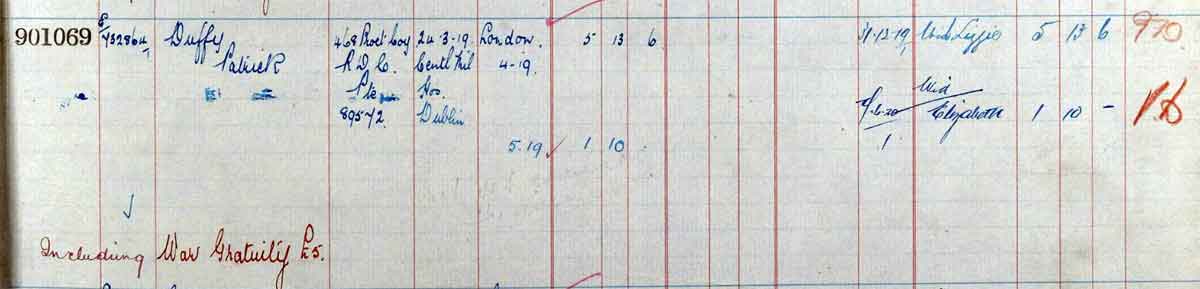 901069 E/452864/1 Duffy 468 Prot Coy 24-3-19 London. 5 13 6 31-12-19 Wid Lizzie 5 13 6 970
Patrick R.D.C. Centl Mil 4-19.
Pte Hos.
Wid
89572 Dublin Elizabeth 1 10 - 1.10
1
5.19 1 10
Including War Gratuity £5.